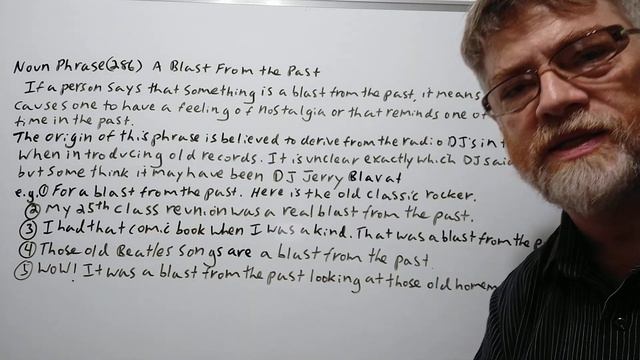 Noun Phrase(286) A Blast From the Past
If a person says that something is a blast from the past, it means
causes one to have a feeling of nostalgia or that reminds one of
time in the past.
The origin of this phrase is believed to derive from the radio DJ's in
when introducing old records. It is unclear exactly which DJ said
but some think it may have been DJ Jerry Blavat
e.g. ① For a blast from the past. Here is the old classic rocker.
② My 25th class reunion was a real blast from the past.
③ I had that comic book when I was a kind. That was a blast from the p
④ Those old Beatles songs are a blast from the past.
⑤ WOW! It was a blast from the past looking at those old homem